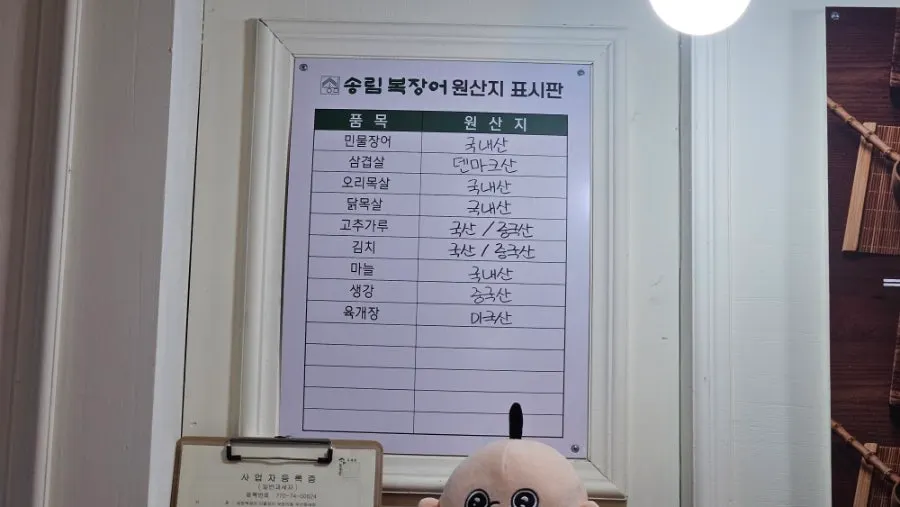 송림 복장어 원산지 표시판
품 목 원 산 지
민물장어 국내산
삼겹살 덴마크산
오리목살 국내산
닭목살 국내산
고추가루 국산 / 중국산
김치 국산 / 중국산
마늘 국내산
생강 중국산
육개장 미국산
사업자등록증
( 일반과세자 )
등록번호